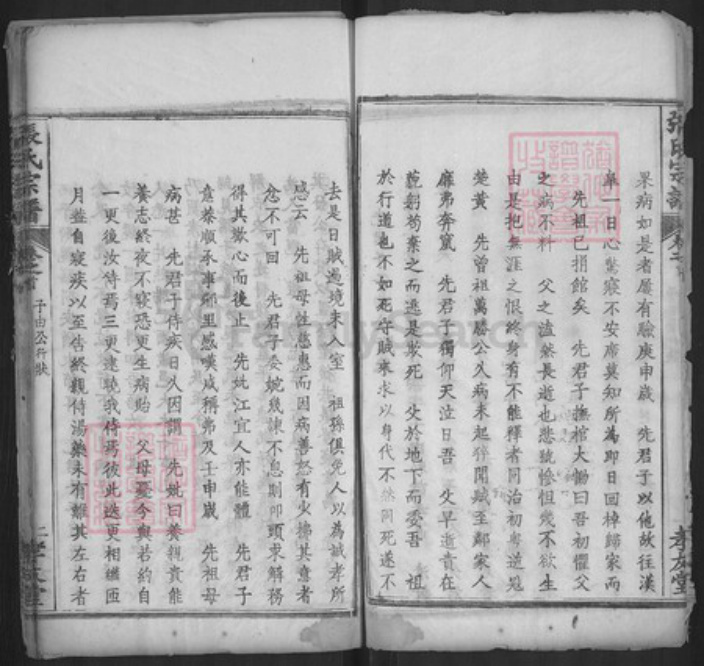 張氏宗譜
卷之首
孝友堂
果病如是者屢有驗庚申歲 先君子以他故往漢
臯一日心驚寢不安席莫知所為即日回棹歸家而
先祖已捐館矣 先君子撫棺大慟曰吾初懼父
之病不料 父之溘然長逝也悲號慘怛幾不欲生
由是抱無涯之恨終身有不能釋者同治初粵逆寇
楚黃 先曾祖萬層公久病未起猝聞賊至鄰家人
靡弗奔竄 先君子獨仰天泣曰吾 父早逝責在
藐躬苟棄之而逃是欺死 父於地下而委吾 祖
於行道也不如死守賊來求以身代不然同死遂不
去是日賊過境未入室 祖孫俱免人以為誠孝所
感云 先祖母性慈惠而因病善怒有少拂其意者
忿不可回 先君子委婉幾諫不息則叩頭求解務
得其歡心而後止 先妣江宜人亦能體 先君子
意恭順承事鄰里感嘆咸稱弗及壬申歲 先祖母
病甚 先君子侍疾日久因謂 先妣曰養親貴能
養志終夜不寢恐更生病貽 父母憂今與若約自
一更後汝侍焉三更達曉我侍焉彼此迭更相繼匝
月並自寢疾以至告終親侍湯藥未有離其左右者
張氏宗譜
卷之首
子由公行狀
二
孝友堂
FamilySearch